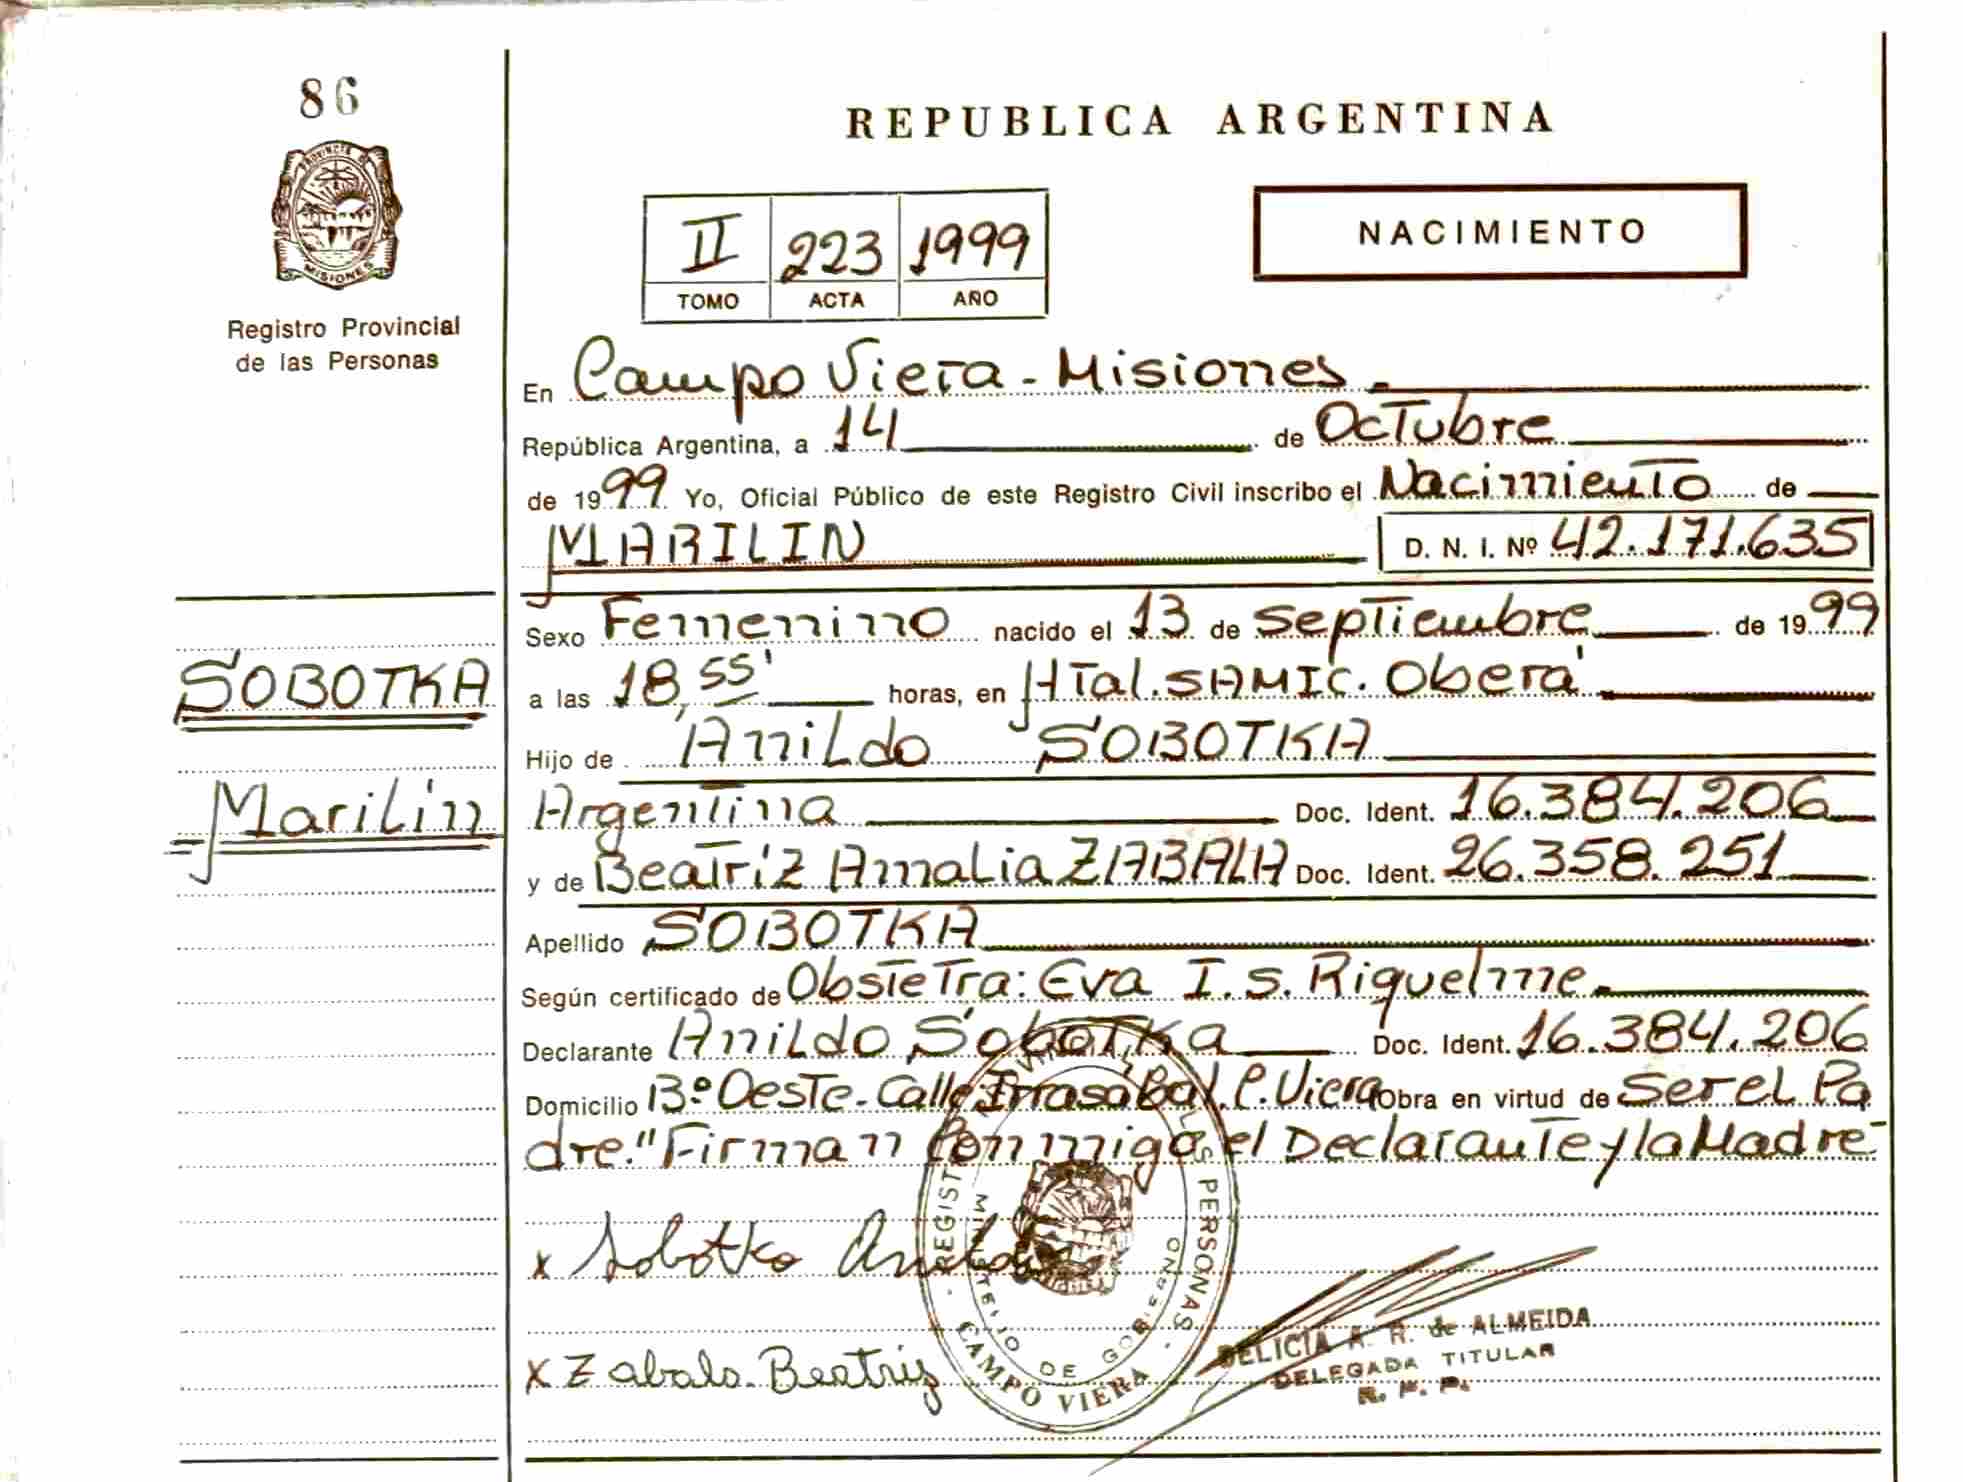 86
PROVINCIA DE
MISIONES
Registro Provincial
de las Personas
REPUBLICA ARGENTINA
II 223 1999
TOMO ACTA AÑO
NACIMIENTO
En Campo Viera - Misiones.
República Argentina, a 14 de Octubre
de 1999 Yo, Oficial Público de este Registro Civil inscribo el Nacimiento de
MARILIN D. N. I. Nº 42.171.635
Sexo Femenino nacido el 13 de Septiembre de 1999
SOBOTKA
a las 18,55' horas, en HTal. SAMIC. Oberá
Hijo de Anildo SOBOTKA
Marilín
Argentina Doc. Ident. 16.384.206
y de Beatríz Amalia ZABALA Doc. Ident. 26.358.251
Apellido SOBOTKA
Según certificado de Obstetra: Eva I. S. Riquelme.
Declarante Anildo Sobotka Doc. Ident. 16.384.206
Domicilio Bº Oeste. Calle Irrasábal. C. Viera Obra en virtud de Ser el Pa
dre." Firman Conmigo el Declarante y la Madre-
x Sobotka Anildo
x Zabala Beatriz
REGISTRO PROVINCIAL DE LAS PERSONAS
MINISTERIO DE GOBIERNO
CAMPO VIERA
DELICIA A. R. de ALMEIDA
DELEGADA TITULAR
R. P. P.